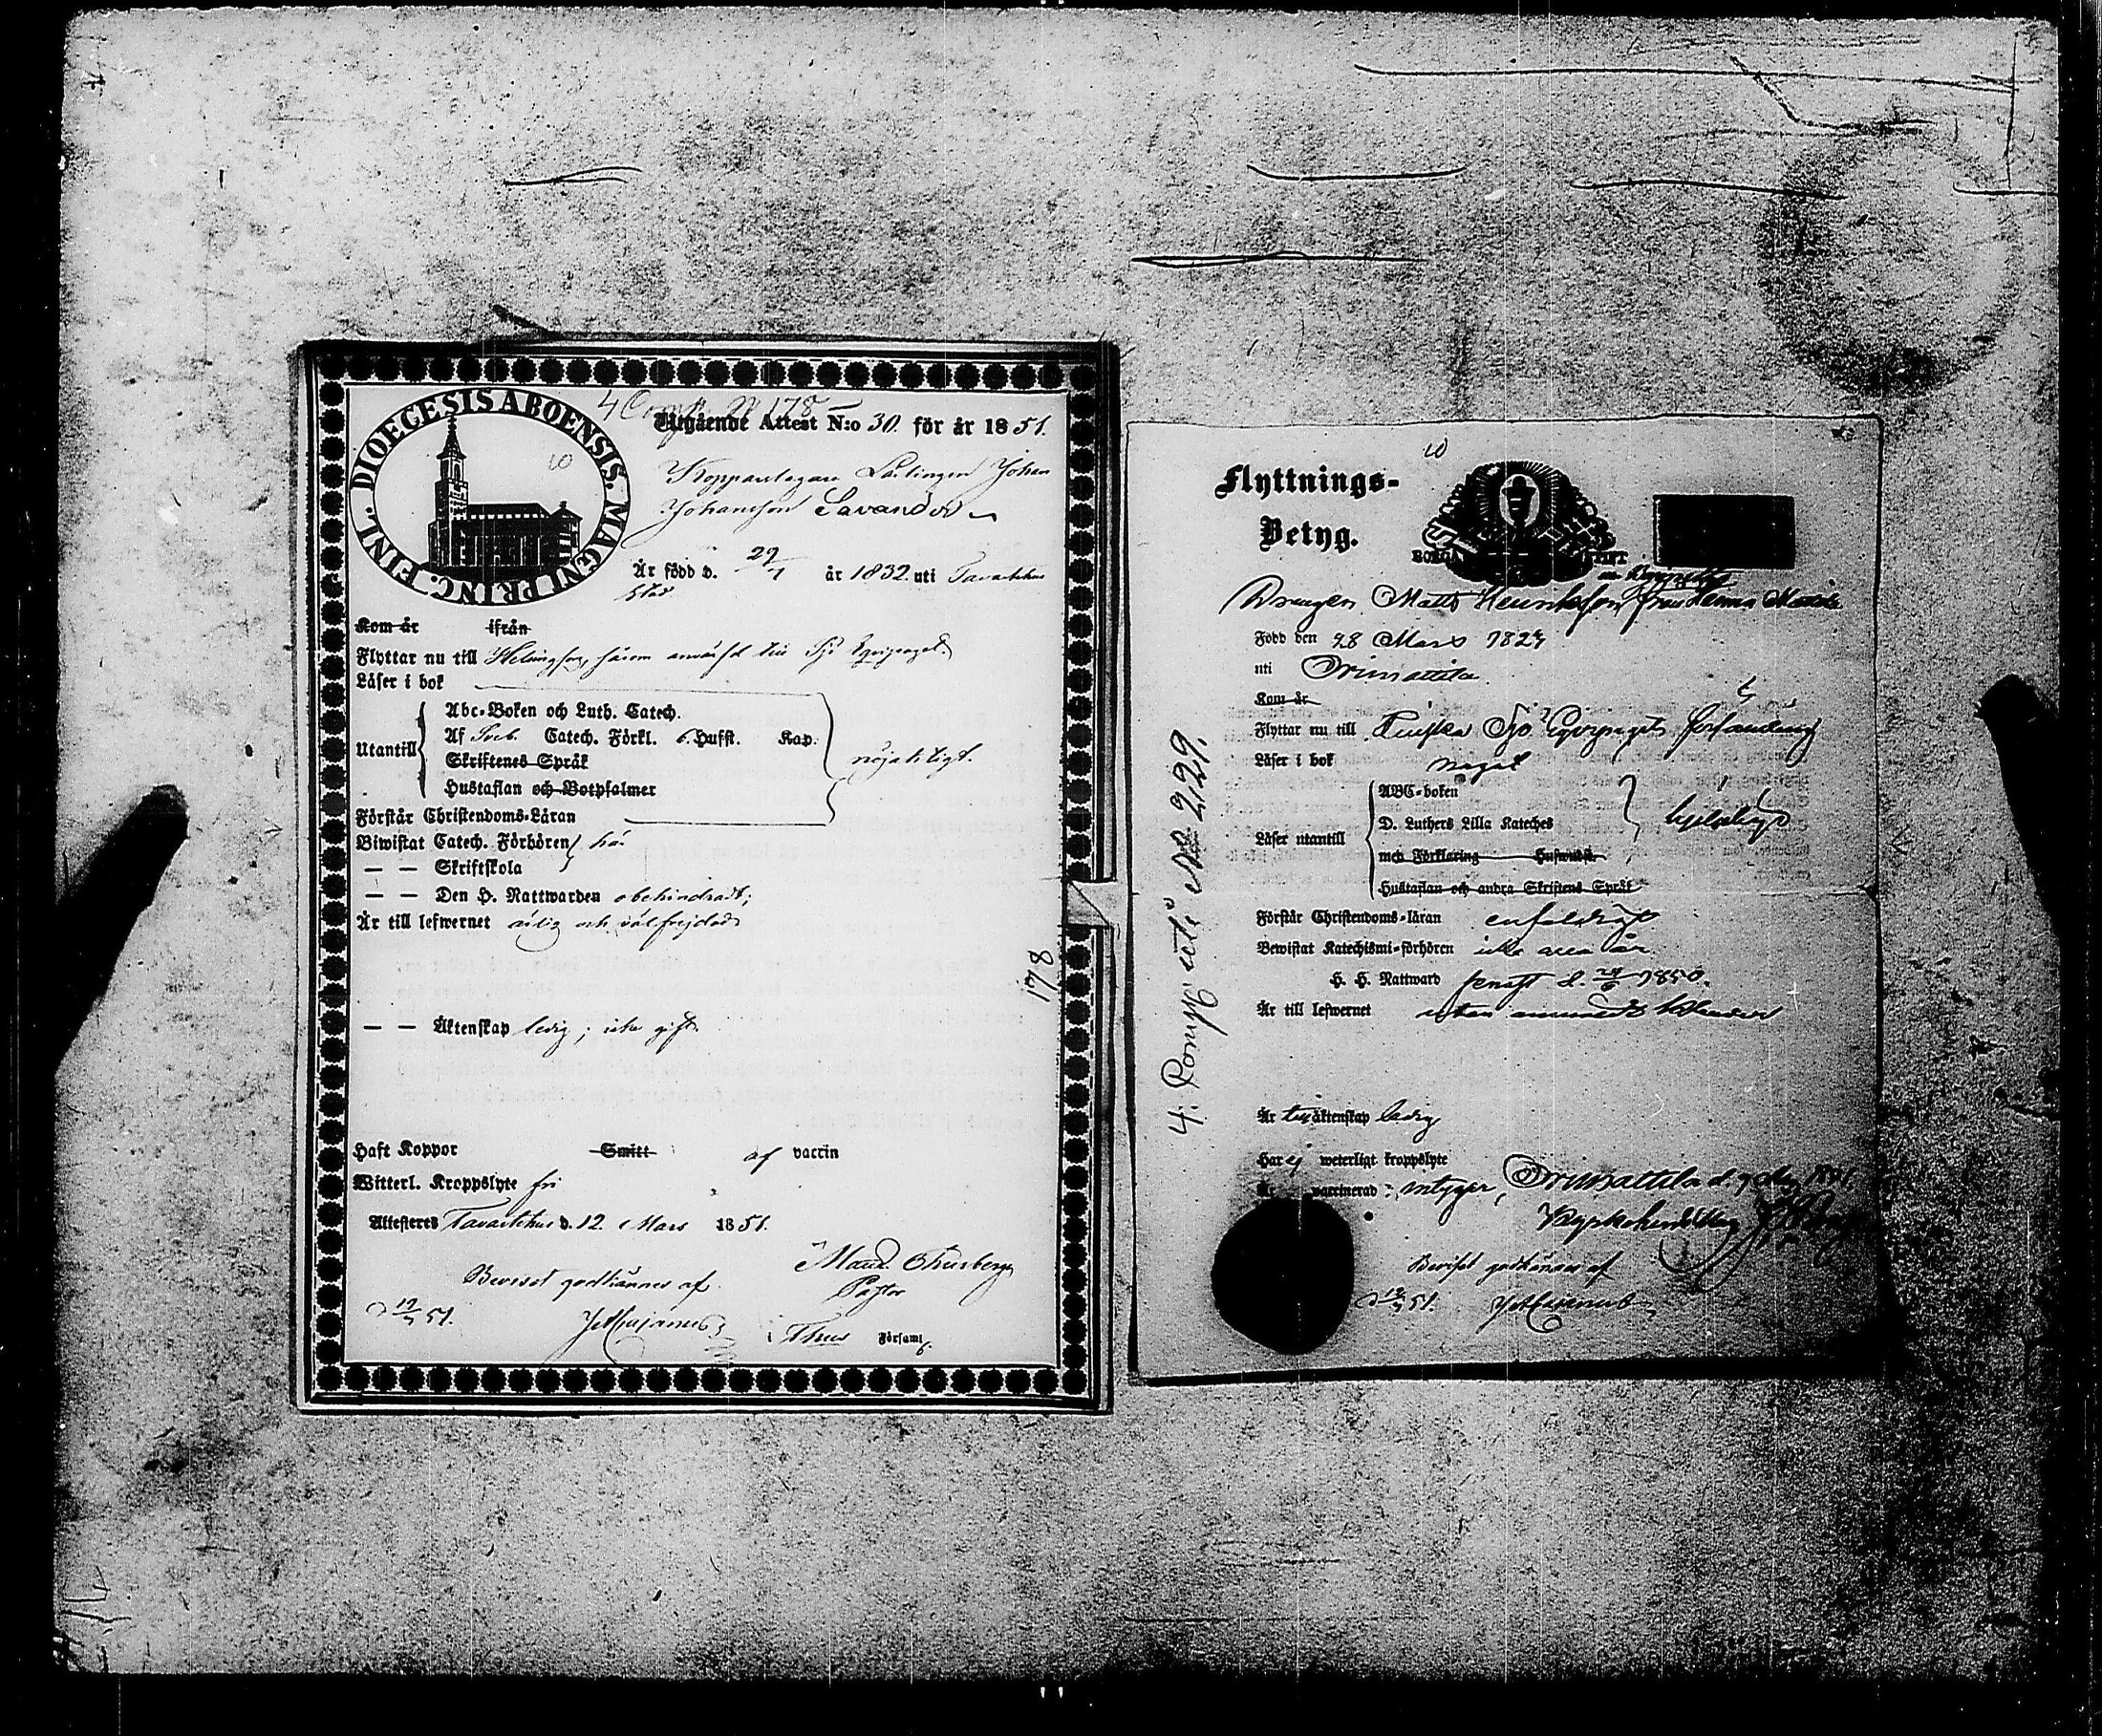 DIOECESIS ABOENSIS. MAGNI PRINC. FINL.
4 Comp. N 178
Utgående Attest N:o 30. för år 1851.
10
Kopparslagare Lärlingen Johan
Johansson Savander
Är född d. 29/1 år 1832. uti Tavastehus
stad
Kom år ifrån
Flyttar nu till Helsingfors, såsom till Sjö Equipaget.
Läser i bok
Utantill
Abc-Boken och Luth. Catech.
Af Sveb. Catech. Förkl. 6. Hufst. Kap.
Skriftenes Språk
Hustaflan och Botpsalmer
nöjaktigt.
Förstår Christendoms-Läran
Biwistat Catech. Förhören
— — Skriftskola
— — Den H. Nattwarden obehindradt;
Är till lefwernet ärlig och välfrejdad
— — Äktenskap ledig; icke gift.
Haft Koppor Smitt af vaccin
Witterl. Kroppslyte fri
Attesteras Tavastehus d. 12. Mars 1851.
Beviset godkännes af
Pastor
i Thus Församl.
178
10
Flyttnings-
Betyg.
BORGÅ STIFT
Drengen Matts Henriksson från
Född den 28 Mars 1827
uti Orimattila
Kom år
Flyttar nu till Finska Sjö Equipagets församling
Läser i bok något
Läser utantill
ABC-boken
D. Luthers Lilla Kateches
med Förklaring Hufwudst.
Hustaflan och andra Skriftens Språk
hjelpligt
Förstår Christendoms-läran enfaldigt
Bewistat Katechismi-förhören icke alla år
H. H. Nattward senast d. 24/6 1850.
Är till lefwernet utan
Är till äktenskap ledig
Har ej weterligt kroppslyte
Är vaccinerad; intygar, Orimattila d. 9 Maj 1851.
Beviset godkännes af
4. Comp. N 229.